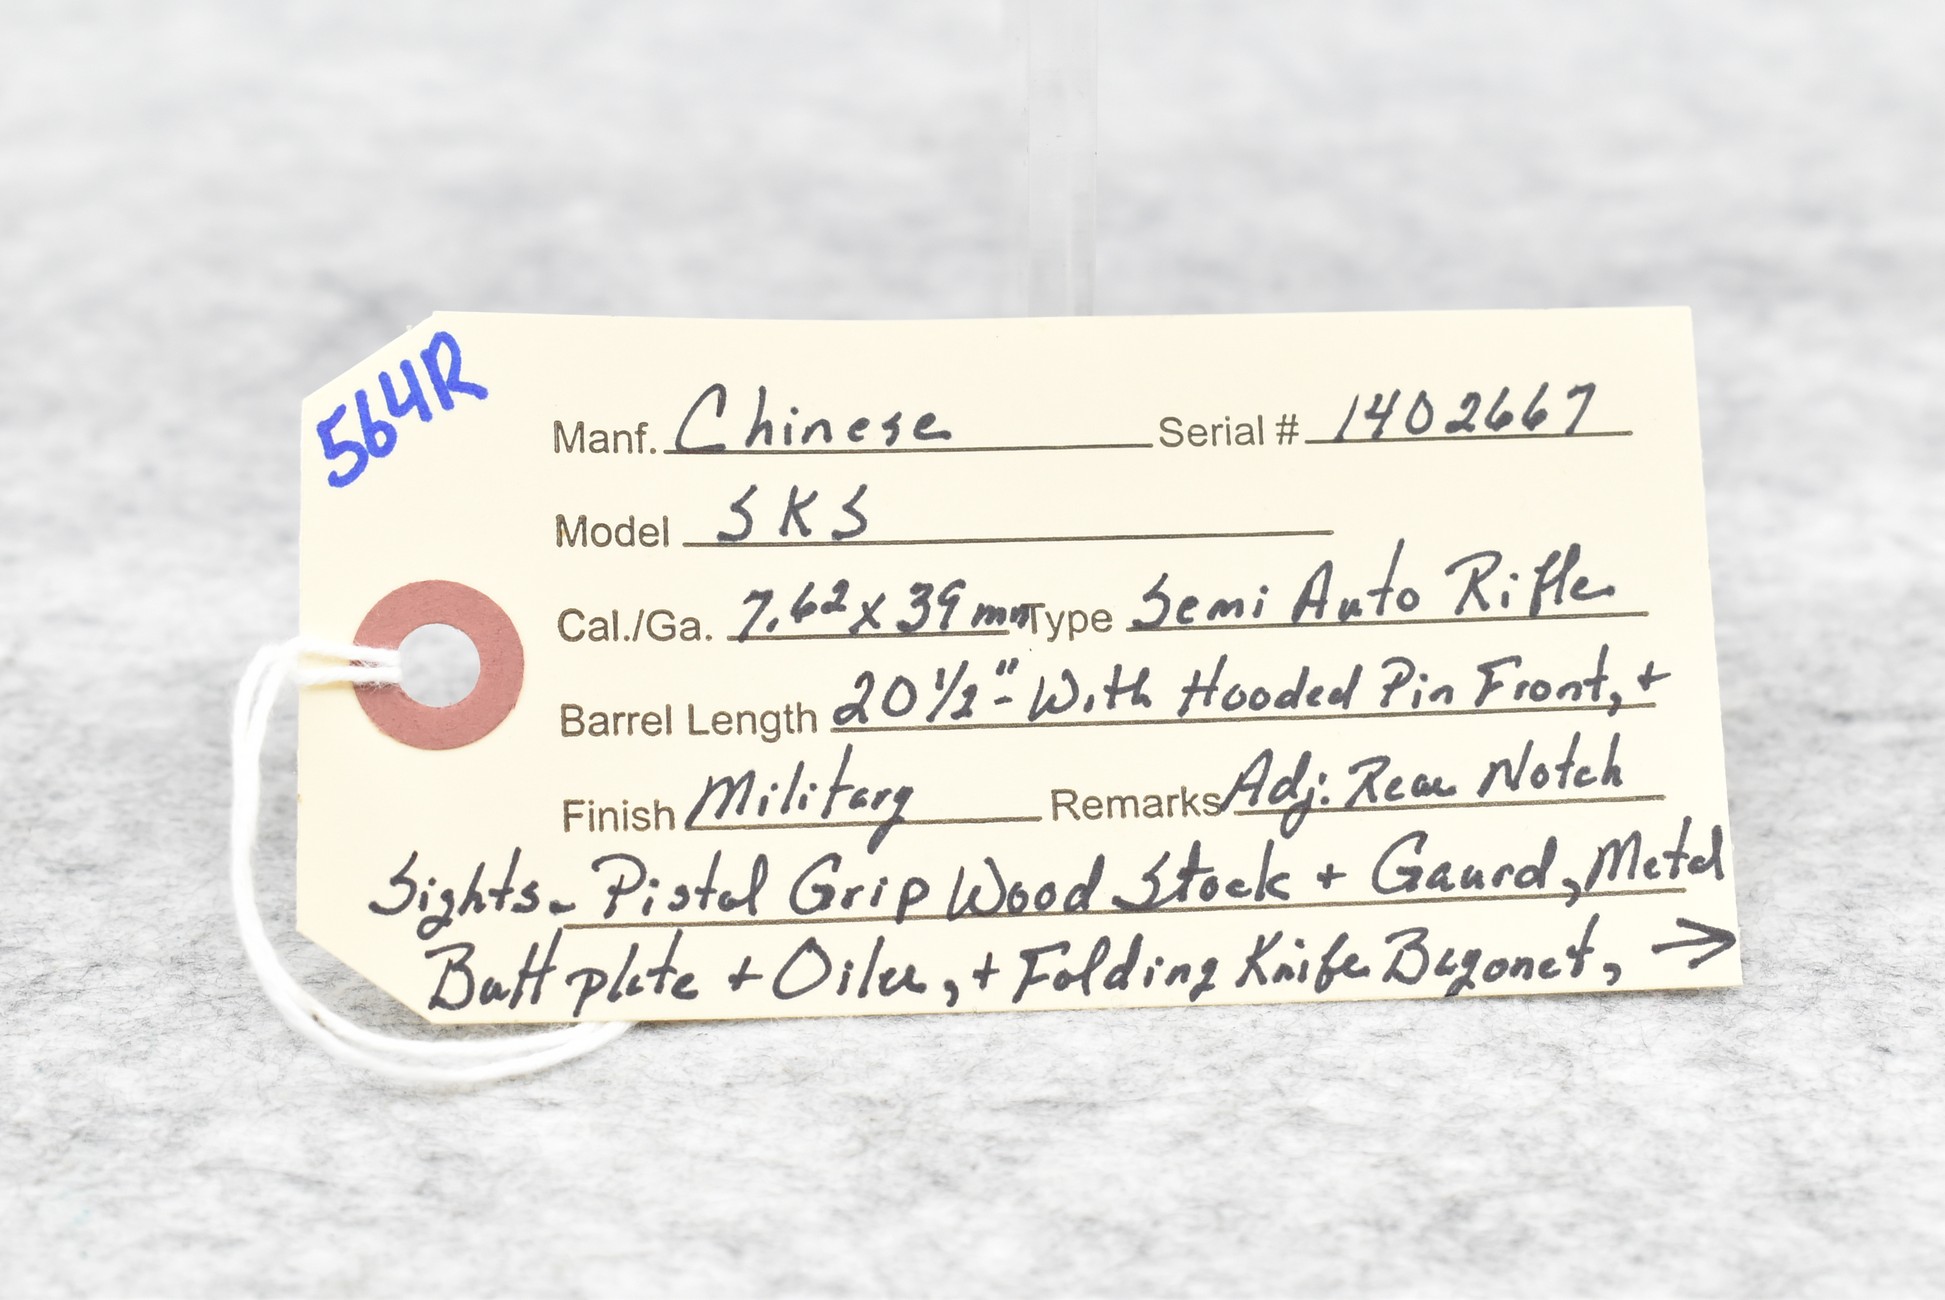 564R
Manf. Chinese Serial # 1402667
Model SKS
Cal./Ga. 7.62x39mm Type Semi Auto Rifle
Barrel Length 20 1/2"- With Hooded Pin Front, +
Finish Military Remarks Adj. Rear Notch
Sights - Pistol Grip Wood Stock + Gaurd, Metal
Buttplate + Oiler, + Folding Knife Bayonet, →